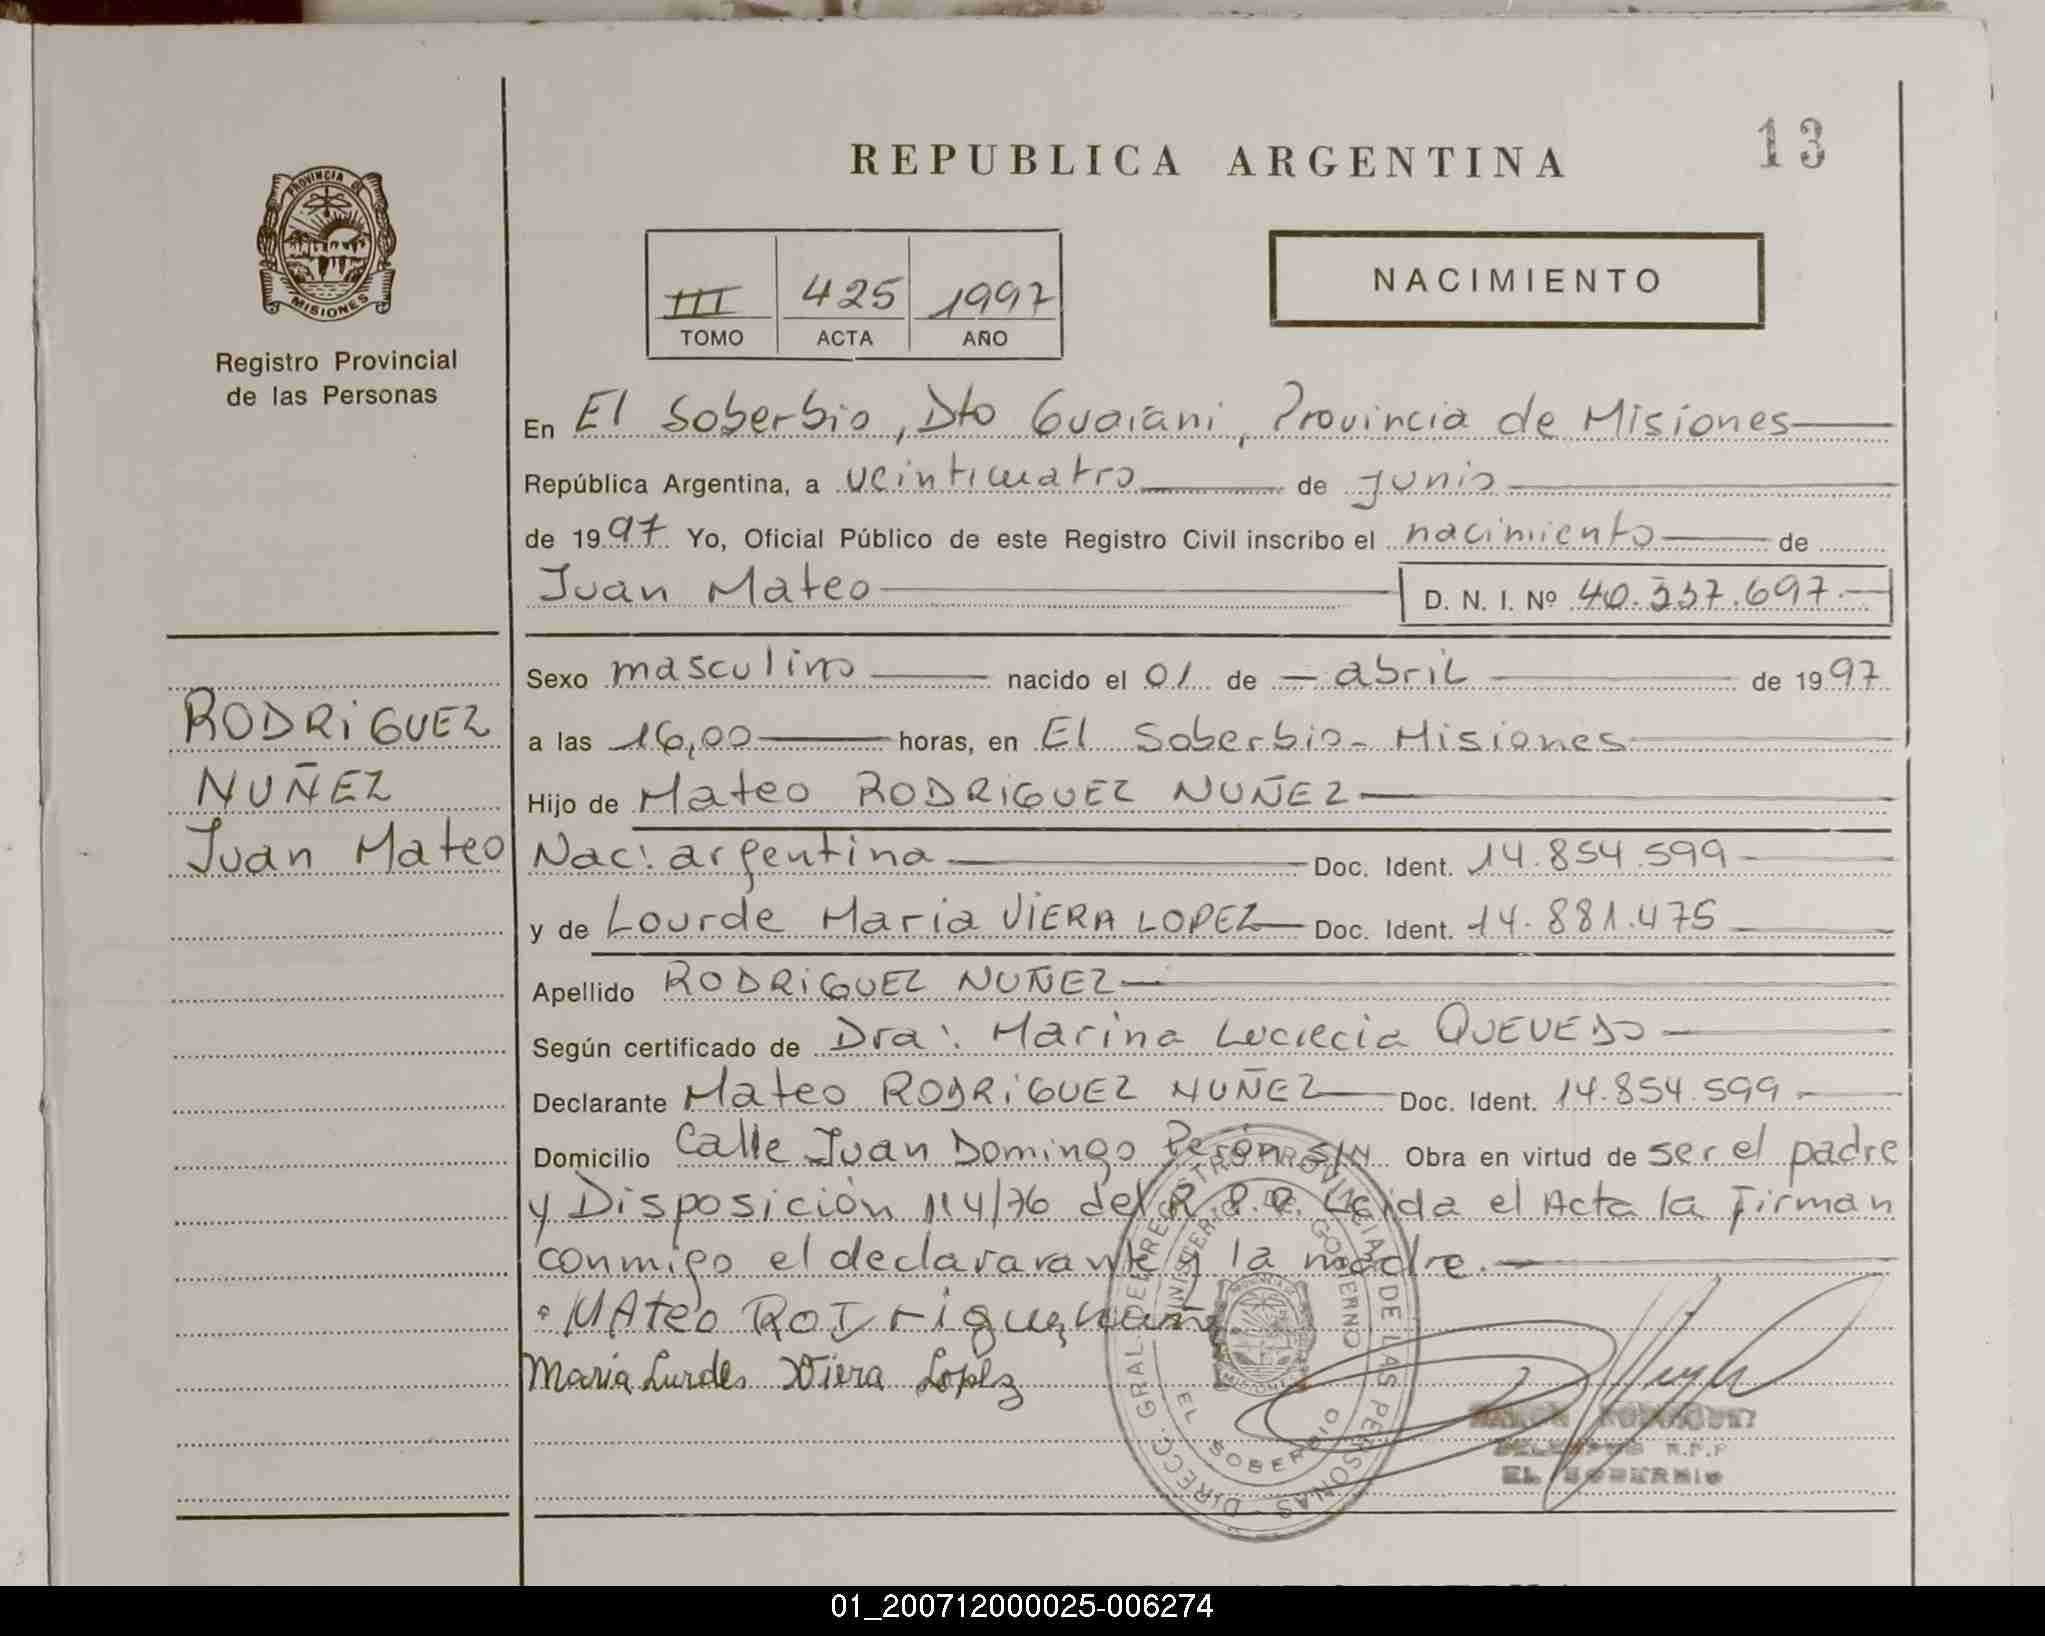 13
REPUBLICA ARGENTINA
PROVINCIA DE
MISIONES
Registro Provincial
de las Personas
III 425 1997
TOMO ACTA AÑO
NACIMIENTO
En El Soberbio, Dto Guaraní, Provincia de Misiones
República Argentina, a veinticuatro de junio
de 1997 Yo, Oficial Público de este Registro Civil inscribo el nacimiento de
Juan Mateo D. N. I. Nº 40.337.697.-
Sexo masculino nacido el 01 de abril de 1997
a las 16,00 horas, en El Soberbio - Misiones
Hijo de Mateo RODRIGUEZ NUÑEZ
Nac: argentina Doc. Ident. 14.854.599
y de Lourde Maria VIERA LOPEZ Doc. Ident. 14.881.475
Apellido RODRIGUEZ NUÑEZ
Según certificado de Dra: Marina Lucrecia QUEVEDO
Declarante Mateo RODRIGUEZ NUÑEZ Doc. Ident. 14.854.599
Domicilio Calle Juan Domingo Perón S/N Obra en virtud de ser el padre
y Disposición 114/76 del R.P.P. Leída el Acta la firman
conmigo el declararante y la madre.
MAteo RoDriguez
Maria Lurdes Viera Lopez
RODRIGUEZ
NUÑEZ
Juan Mateo
DIRECC. GRAL. DEL REGISTRO PROVINCIAL DE LAS PERSONAS
MINISTERIO DE GOBIERNO
EL SOBERBIO
R.P.P
EL SOBERBIO
01_200712000025-006274